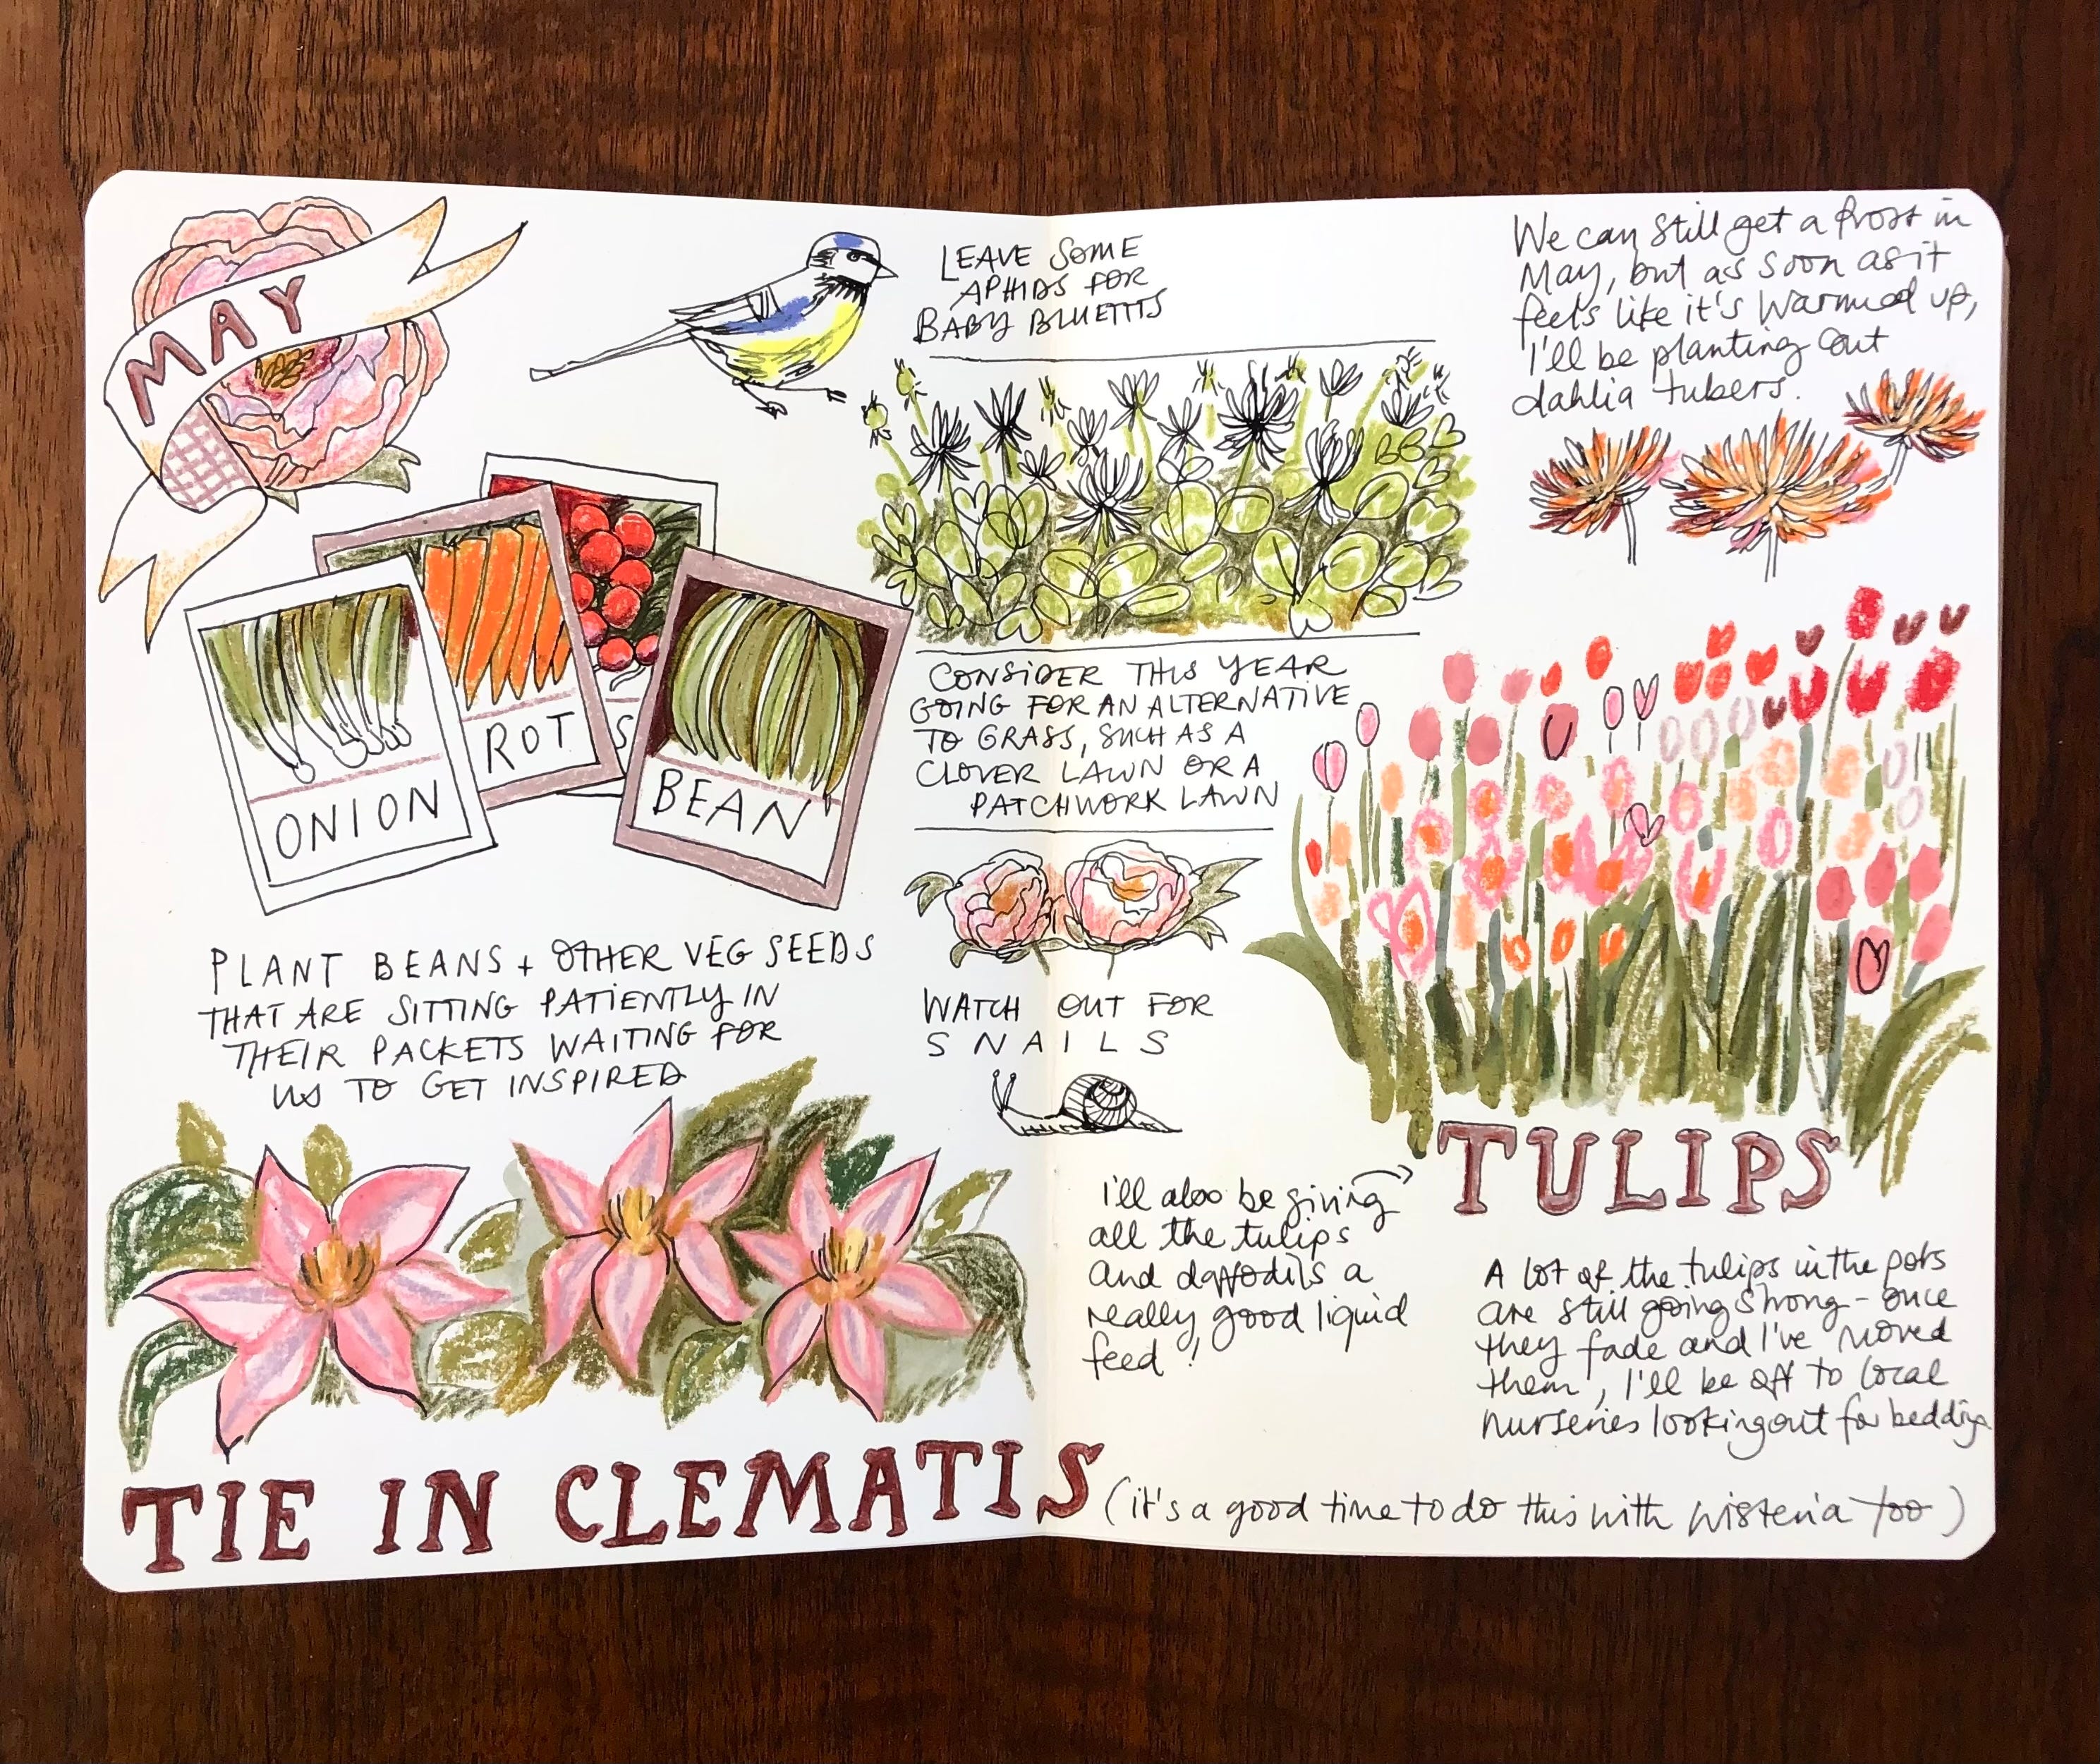 MAY
LEAVE SOME
APHIDS FOR
BABY BLUETITS
ONION
ROT
S
BEAN
PLANT BEANS + OTHER VEG SEEDS
THAT ARE SITTING PATIENTLY IN
THEIR PACKETS WAITING FOR
US TO GET INSPIRED
CONSIDER THIS YEAR
GOING FOR AN ALTERNATIVE
TO GRASS, SUCH AS A
CLOVER LAWN OR A
PATCHWORK LAWN
WATCH OUT FOR
SNAILS
TIE IN CLEMATIS (it's a good time to do this with wisteria too)
We can still get a frost in
May, but as soon as it
feels like it's warmed up,
I'll be planting out
dahlia tubers.
TULIPS
I'll also be giving
all the tulips
and daffodils a
really good liquid
feed!
A lot of the tulips in the pots
are still going strong - once
they fade and I've moved
them, I'll be off to local
nurseries looking out for bedding